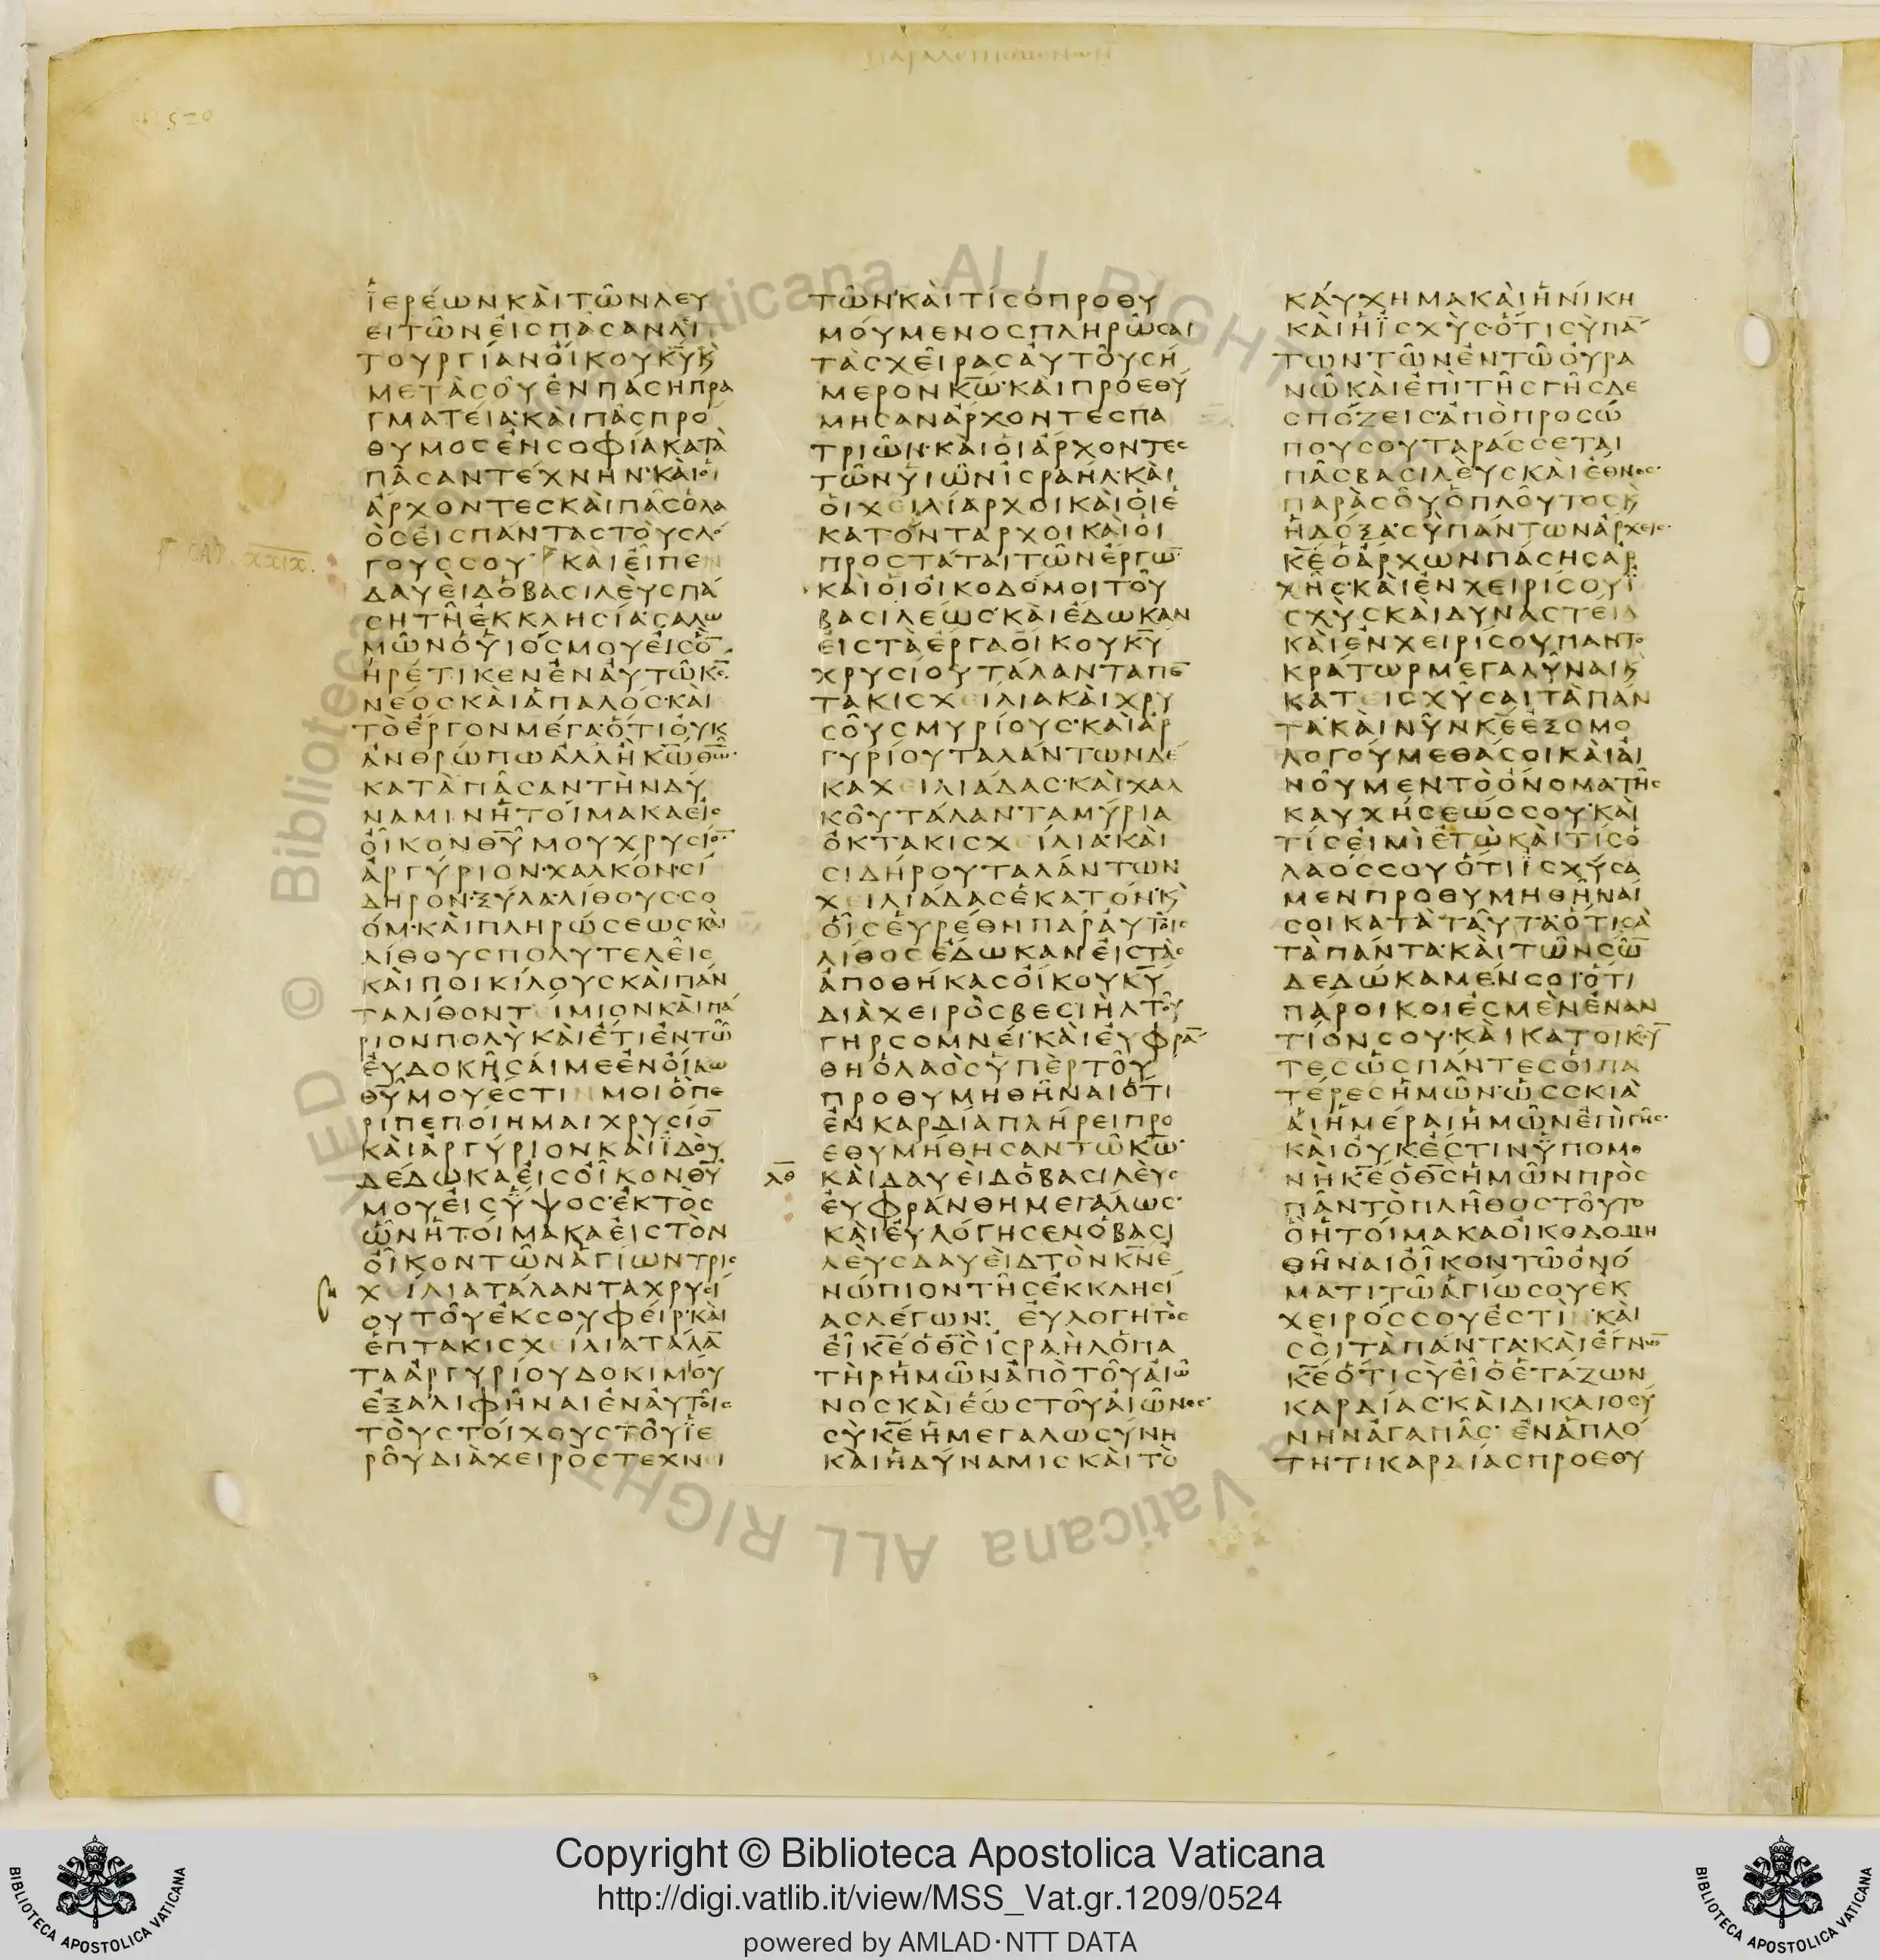 ΠΑΡΑΛΕΙΠΟΜΕΝΩΝ
520
ΪΕΡΕΩΝΚΑΙΤΩΝΛΕΥ
ΕΙΤΩΝΕΙCΠΑCΑΝΛΙΤ
ΤΟΥΡΓΙΑΝΟΙΚΟΥΚ̅Υ̅Κ
ΜΕΤΑCΟΥΕΝΠΑCΗΠΡΑ
ΓΜΑΤΕΙΑ·ΚΑΙΠΑCΠΡΟ
ΘΥΜΟCΕΝCΟΦΙΑΚΑΤΑ
ΠΑCΑΝΤΕΧΝΗΝ·ΚΑΙΟΙ
ΑΡΧΟΝΤΕCΚΑΙΠΑCΟΛΑ
ΟCΕΙCΠΑΝΤΑCΤΟΥCΛΟ
ΓΟΥCCΟΥ· ΚΑΙΕΙΠΕΝ
CAP. XXIX.
ΔΑΥΕΙΔΟΒΑCΙΛΕΥCΠΑ
CΗΤΗΕΚΚΛΗCΙΑ·CΑΛΩ
ΜΩΝΟΥΙΟCΜΟΥΕΙCΟ̅
ΗΡΕΤΙΚΕΝΕΝΑΥΤΩΚ̅C̅
ΝΕΟCΚΑΙΑΠΑΛΟC·ΚΑΙ
ΤΟΕΡΓΟΝΜΕΓΑ·ΟΤΙΟΥΚ
ΑΝΘΡΩΠΩΑΛΛΗΚ̅Ω̅Θ̅Ω̅·
ΚΑΤΑΠΑCΑΝΤΗΝΔΥ
ΝΑΜΙΝΗΤΟΙΜΑΚΑΕΙC
ΟΙΚΟΝΘ̅Υ̅ΜΟΥΧΡΥCΙΟ̅·
ΑΡΓΥΡΙΟΝ·ΧΑΛΚΟΝ·CΙ
ΔΗΡΟΝ·ΞΥΛΑ·ΛΙΘΟΥC·CΟ
ΟΜ·ΚΑΙΠΛΗΡΩCΕΩCΚΑΙ
ΛΙΘΟΥCΠΟΛΥΤΕΛΕΙC
ΚΑΙΠΟΙΚΙΛΟΥCΚΑΙΠΑΝ
ΤΑΛΙΘΟΝΤΕΙΜΙΟΝΚΑΙΠΑ
ΡΙΟΝΠΟΛΥΚΑΙΕΤΙΕΝΤΩ
ΕΥΔΟΚΗCΑΙΜΕΕΝΟΙΚΩ
Θ̅Υ̅ΜΟΥΕCΤΙΝΜΟΙΟΠΕ
ΡΙΠΕΠΟΙΗΜΑΙΧΡΥCΙΟ̅
ΚΑΙΑΡΓΥΡΙΟΝΚΑΙΪΔΟΥ
ΔΕΔΩΚΑΕΙCΟΙΚΟΝΘ̅Υ̅
ΜΟΥΕΙCΥΨΟC·ΕΚΤΟC
ΩΝΗΤΟΙΜΑΚΑΕΙCΤΟΝ
ΟΙΚΟΝΤΩΝΑΓΙΩΝΤΡΙC
ΧΕΙΛΙΑΤΑΛΑΝΤΑΧΡΥCΙ
ΟΥΤΟΥΕΚCΟΥΦΕΙΡ·ΚΑΙ
ΕΠΤΑΚΙCΧΕΙΛΙΑΤΑΛΑ̅
ΤΑΑΡΓΥΡΙΟΥΔΟΚΙΜΟΥ
ΕΞΑΛΙΦΗΝΑΙΕΝΑΥΤΟΙC
ΤΟΥCΤΟΙΧΟΥCΤΟΥΪΕ
ΡΟΥΔΙΑΧΕΙΡΟCΤΕΧΝΕΙ
ΤΩΝ·ΚΑΙΤΙCΟΠΡΟΘΥ
ΜΟΥΜΕΝΟCΠΛΗΡΩCΑΙ
ΤΑCΧΕΙΡΑCΑΥΤΟΥCΗ
ΜΕΡΟΝΚ̅Ω̅·ΚΑΙΠΡΟΕΘΥ
ΜΗCΑΝΑΡΧΟΝΤΕCΠΑ
ΤΡΙΩΝ·ΚΑΙΟΙΑΡΧΟΝΤΕC
ΤΩΝΥΙΩΝΙCΡΑΗΛ·ΚΑΙ
ΟΙΧΕΙΛΙΑΡΧΟΙΚΑΙΟΙΕ
ΚΑΤΟΝΤΑΡΧΟΙΚΑΙΟΙ
ΠΡΟCΤΑΤΑΙΤΩΝΕΡΓΩ̅
ΚΑΙΟΙΟΙΚΟΔΟΜΟΙΤΟΥ
ΒΑCΙΛΕΩC·ΚΑΙΕΔΩΚΑΝ
ΕΙCΤΑΕΡΓΑΟΙΚΟΥΚ̅Υ̅
ΧΡΥCΙΟΥΤΑΛΑΝΤΑΠΕ̅
ΤΑΚΙCΧΕΙΛΙΑΚΑΙΧΡΥ
CΟΥCΜΥΡΙΟΥC·ΚΑΙΑΡ
ΓΥΡΙΟΥΤΑΛΑΝΤΩΝΔΕ
ΚΑΧΕΙΛΙΑΔΑC·ΚΑΙΧΑΛ
ΚΟΥΤΑΛΑΝΤΑΜΥΡΙΑ
ΟΚΤΑΚΙCΧΕΙΛΙΑ·ΚΑΙ
CΙΔΗΡΟΥΤΑΛΑΝΤΩΝ
ΧΕΙΛΙΑΔΑCΕΚΑΤΟΝ·Κ
ΟΙCΕΥΡΕΘΗΠΑΡΑΥΤΟΙC
ΛΙΘΟCΕΔΩΚΑΝΕΙCΤΑC
ΑΠΟΘΗΚΑCΟΙΚΟΥΚ̅Υ̅
ΔΙΑΧΕΙΡΟCΒΕCΙΗΛΤΟΥ
ΓΗΡCΟΜΝΕΙ·ΚΑΙΕΥΦΡΑ̅
ΘΗΟΛΑΟCΥΠΕΡΤΟΥ
ΠΡΟΘΥΜΗΘΗΝΑΙΟΤΙ
ΕΝΚΑΡΔΙΑΠΛΗΡΕΙΠΡΟ
ΕΘΥΜΗΘΗCΑΝΤΩΚ̅Ω̅·
ΛΘ ΚΑΙΔΑΥΕΙΔΟΒΑCΙΛΕΥC
ΕΥΦΡΑΝΘΗΜΕΓΑΛΩC·
ΚΑΙΕΥΛΟΓΗCΕΝΟΒΑCΙ
ΛΕΥCΔΑΥΕΙΔΤΟΝΚ̅Ν̅Ε
ΝΩΠΙΟΝΤΗCΕΚΚΛΗCΙ
ΑCΛΕΓΩΝ: ΕΥΛΟΓΗΤΟC
ΕΙΚ̅Ε̅ΟΘ̅C̅ΙCΡΑΗΛΟΠΑ
ΤΗΡΗΜΩΝΑΠΟΤΟΥΑΙΩ
ΝΟCΚΑΙΕΩCΤΟΥΑΙΩΝΟC·
CΥΚ̅Ε̅ΗΜΕΓΑΛΩCΥΝΗ
ΚΑΙΗΔΥΝΑΜΙCΚΑΙΤΟ
ΚΑΥΧΗΜΑΚΑΙΗΝΙΚΗ
ΚΑΙΗΪCΧΥC·ΟΤΙCΥΠΑ̅
ΤΩΝΤΩΝΕΝΤΩΟΥΡΑ
ΝΩΚΑΙΕΠΙΤΗCΓΗCΔΕ
CΠΟΖΕΙC·ΑΠΟΠΡΟCΩ
ΠΟΥCΟΥΤΑΡΑCCΕΤΑΙ
ΠΑCΒΑCΙΛΕΥCΚΑΙΕΘΝΟC·
ΠΑΡΑCΟΥΟΠΛΟΥΤΟCΚ
ΗΔΟΞΑ·CΥΠΑΝΤΩΝΑΡΧΕΙC·
Κ̅Ε̅ΟΑΡΧΩΝΠΑCΗCΑΡ
ΧΗC·ΚΑΙΕΝΧΕΙΡΙCΟΥΪ
CΧΥCΚΑΙΔΥΝΑCΤΕΙΑ
ΚΑΙΕΝΧΕΙΡΙCΟΥΠΑΝΤΟ
ΚΡΑΤΩΡΜΕΓΑΛΥΝΑΙΚ
ΚΑΤΕΙCΧΥCΑΙΤΑΠΑΝ
ΤΑ·ΚΑΙΝΥΝΚ̅Ε̅ΕΞΟΜΟ
ΛΟΓΟΥΜΕΘΑCΟΙΚΑΙΑΙ
ΝΟΥΜΕΝΤΟΟΝΟΜΑΤΗC
ΚΑΥΧΗCΕΩCCΟΥ·ΚΑΙ
ΤΙCΕΙΜΙΕΓΩΚΑΙΤΙCΟ
ΛΑΟCCΟΥΟΤΙΪCΧΥCΑ
ΜΕΝΠΡΟΘΥΜΗΘΗΝΑΙ
CΟΙΚΑΤΑΤΑΥΤΑ·ΟΤΙCΑ
ΤΑΠΑΝΤΑ·ΚΑΙΤΩΝCΩ̅
ΔΕΔΩΚΑΜΕΝCΟΙ·ΟΤΙ
ΠΑΡΟΙΚΟΙΕCΜΕΝΕΝΑΝ
ΤΙΟΝCΟΥ·ΚΑΙΚΑΤΟΙΚΟΥ̅
ΤΕCΩCΠΑΝΤΕCΟΙΠΑ
ΤΕΡΕCΗΜΩΝ·ΩCCΚΙΑ
ΑΙΗΜΕΡΑΙΗΜΩΝΕΠΙΓΗC·
ΚΑΙΟΥΚΕCΤΙΝΥΠΟΜΟ
ΝΗΚ̅Ε̅ΟΘ̅C̅ΗΜΩΝΠΡΟC
ΠΑΝΤΟΠΛΗΘΟCΤΟΥΤΟ
ΟΗΤΟΙΜΑΚΑΟΙΚΟΔΟΜΗ
ΘΗΝΑΙΟΙΚΟΝΤΩΟΝΟ
ΜΑΤΙΤΩΑΓΙΩCΟΥΕΚ
ΧΕΙΡΟCCΟΥΕCΤΙΝΚΑΙ
CΟΙΤΑΠΑΝΤΑ·ΚΑΙΕΓΝΩ̅
Κ̅Ε̅ΟΤΙCΥΕΙΟΕΤΑΖΩΝ
ΚΑΡΔΙΑC·ΚΑΙΔΙΚΑΙΟCΥ
ΝΗΝΑΓΑΠΑC· ΕΝΑΠΛΟ
ΤΗΤΙΚΑΡΔΙΑCΠΡΟΕΘΥ
Copyright © Biblioteca Apostolica Vaticana
http://digi.vatlib.it/view/MSS_Vat.gr.1209/0524
powered by AMLAD·NTT DATA
BIBLIOTECA APOSTOLICA VATICANA
BIBLIOTECA APOSTOLICA VATICANA